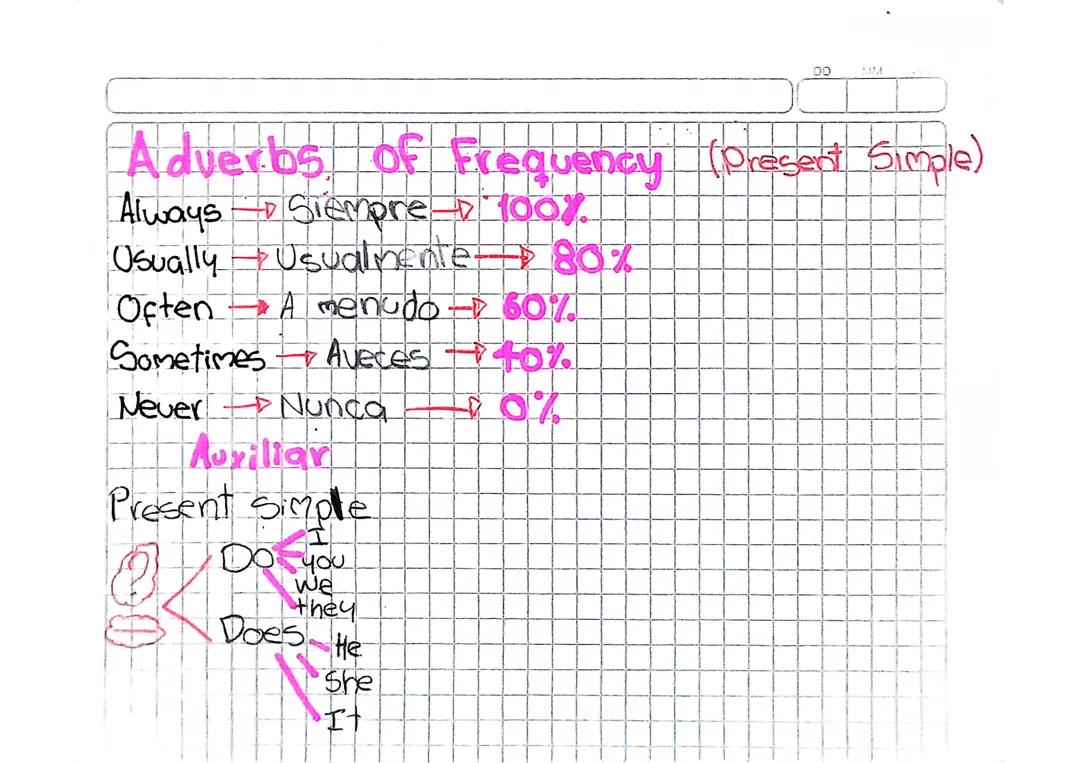 DD MM
Adverbs of Frequency (Present Simple)
Always → Siempre → 100%
Usually → Usualmente → 80%
Often → A menudo → 60%
Sometimes → Aveces → 40%
Never → Nunca → 0%
Auxiliar
Present simple
?
Do
I
you
we
they
Does
He
She
It